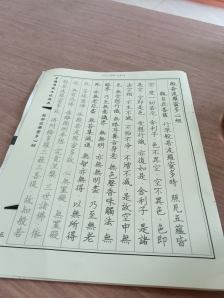 般若波羅蜜多心經
觀自在菩薩 行深般若波羅蜜多時 照見五蘊皆
空 度一切苦厄 舍利子 色不異空 空不異色 色即
是空 空即是色 受想行識 亦復如是 舍利子 是諸
法空相 不生不滅 不垢不淨 不增不減 是故空中無
色 無受想行識 無眼耳鼻舌身意 無色聲香味觸法 無
眼界 乃至無意識界 無無明 亦無無明盡 乃至無老
死 亦無老死盡 無苦集滅道 無智亦無得 以無所得
無罣礙
三世諸佛 依
菩提 故知般若
般若波羅蜜多心經